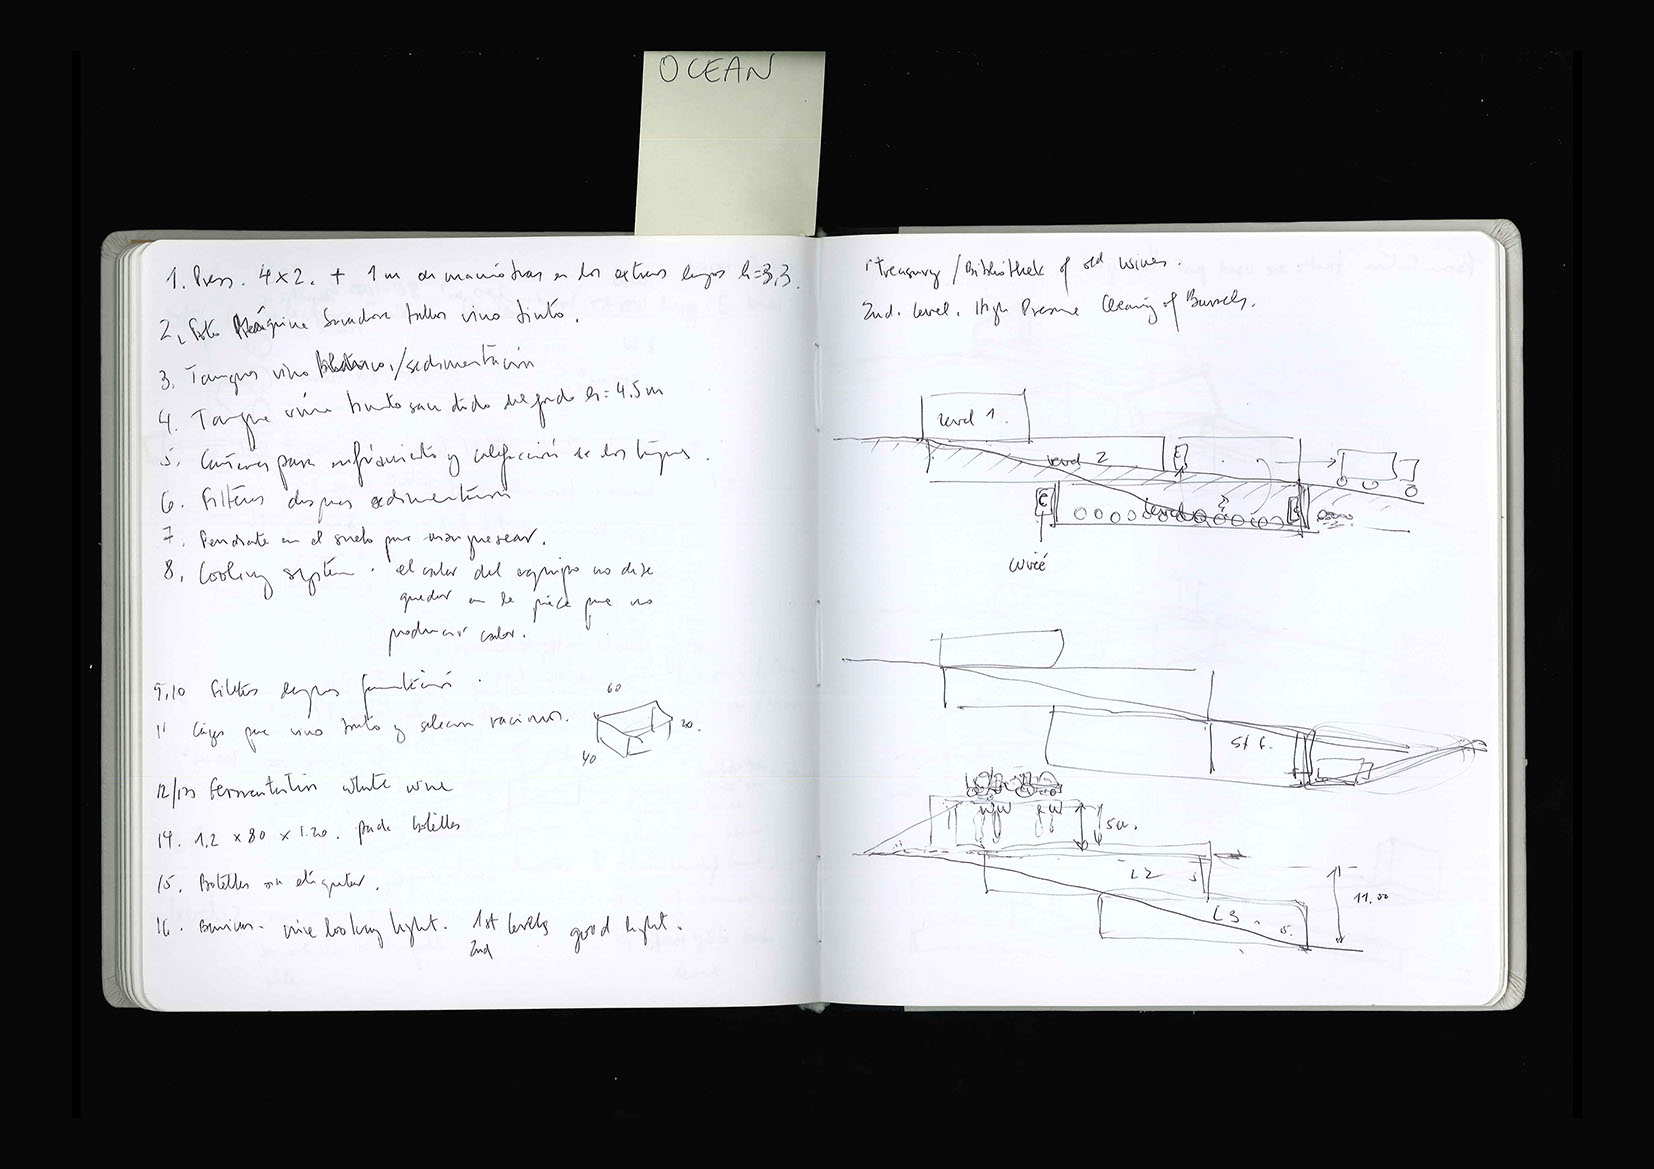 OCEAN
1. Press. 4x2. + 1m de maniobras en los extremos largos h=3,3.
2. Foto Máquina Secadora tallos vino tinto.
3. Tanques vino blanco/sedimentación
4. Tanque vino tinto h=4.5m
5. Cañerías para enfriamiento y calefacción de los tanques.
6. Filtros despues sedimentación
7. Pendiente en el suelo para manguerear.
8. Cooling system. el calor del equipo no debe
quedar en la pieza que no
calor.
9,10 filtros
11 Cajas para vino tinto y seleccion racimos.
60
20.
40
12/13 Fermentation white wine
14. 1,2 x 80 x 1.20. botellas
15. Botellas sin etiquetar.
16. Barricas. nice looking light. 1st levels good light.
2nd
1 Treasury / Bibliothek of old wines.
2nd. Level. High Pressure Cleaning of Barrels.
level 1.
level 2
E
C
level
St 6.
5m.
L2
L3
5.
11.00